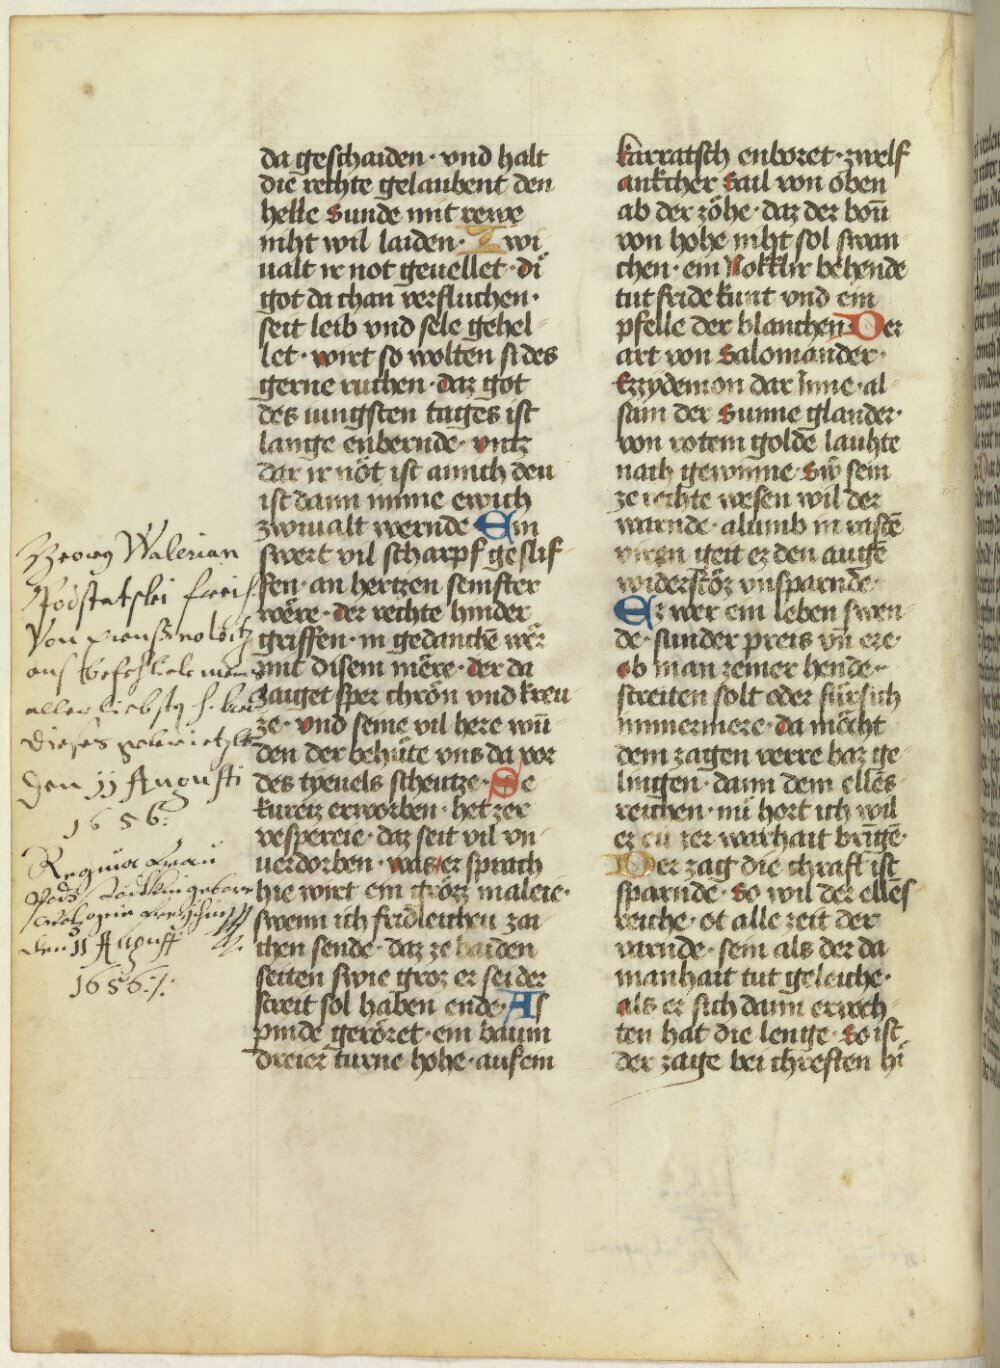 da geschaiden · vnd halt
die rehte gelaubent den
helle sunde mit rewe
niht wil laiden · Zwi
ualt ir not geuellet · di
got da chan verfluchen ·
seit leib vnd sele gehel
let · wirt so wolten si des
gerne ruchen · daz got
des iungsten tages ist
lange enbernde · vntz
dar ir nöt ist
ist dann ewich
zwiualt wernde · Ein
swert vil scharpf geslif
fen · an hertzen semfter
wëre · der rechte hinder
griffen · in gedanchē wër
mit disem mëre · der da
zauget sper chrön vnd kreu
ze · vnd seine vil here wū
den der behüte vns da vor
des tyeuels scheutze · Se
kureiz erworben · het zer
vespereie · daz seit vil vn
uerdorben · was er sprach
hie wirt ein grözz maleie ·
swenn ich fridleichen zai
chen sende · daz ze baiden
seiten swie groz er sei der
streit sol haben ende · As
pinde geröret · ein baum
dreier turne hohe · auf em
karratsch enboret · zwelf
ankcher sail von oben
ab der zöhe · daz der boū
von hohe niht sol swan
chen · ein behende
tut fride kunt vnd ein
pfelle der blanchen · Der
art von Salomander ·
Ezzydemon dar Inne · al
sam der Sunne glander ·
von rotem golde lauhte
nach gewinne · Sw sein
ze rechte wesen wil der
warnde · alumb in
geit ez den auge
widerstöz vnsparnde ·
Ez wer ein leben swen
de · sunder preis vn ere ·
ob man zeiner hende ·
streiten solt oder fürsich
nimmermere · da möcht
dem zagen verre baz ge
lingen · dann dem ellēs
reichen · nu hort ich wil
ez eu zer warhait brigē ·
Der zag die chraft ist
sparndē · so wil der ellēs
reiche · ot alle zeit der
varnde · sein als der da
manhait tut geleiche ·
als er sich dann erweh
ten hat die lenge · so ist
der zage bei chreften hi
Georg Walerian
Podstatski freih
Von
auf befehl
aller liebsten
dieses
den 11 Augusti
1656:
Regina Frau

den 11 August
1656 :/: